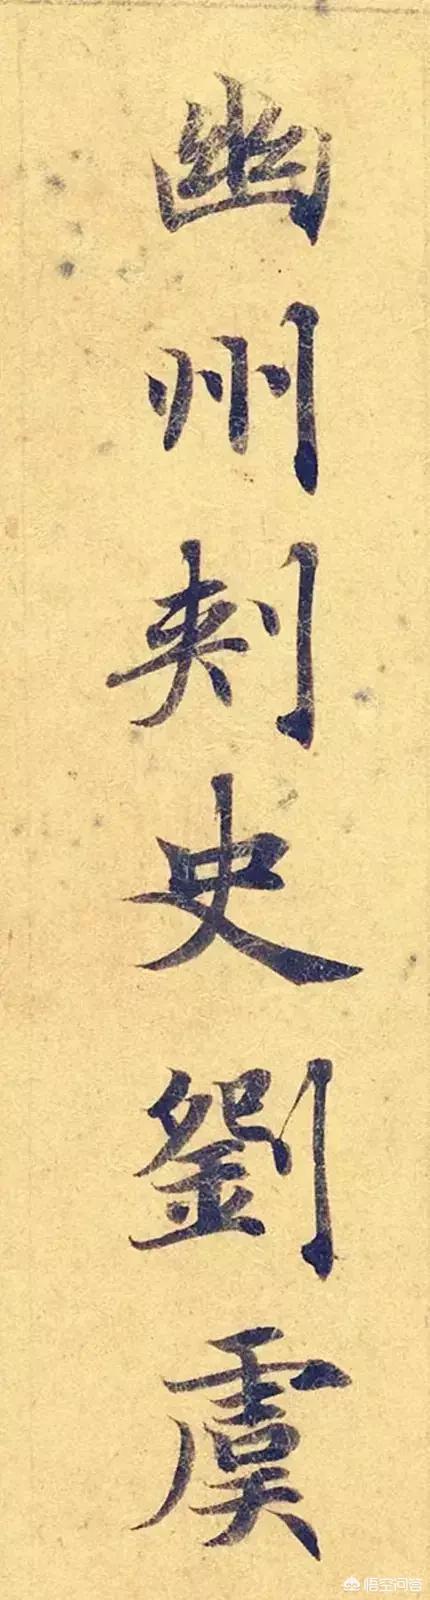 幽州刺史劉虞
悟空问答